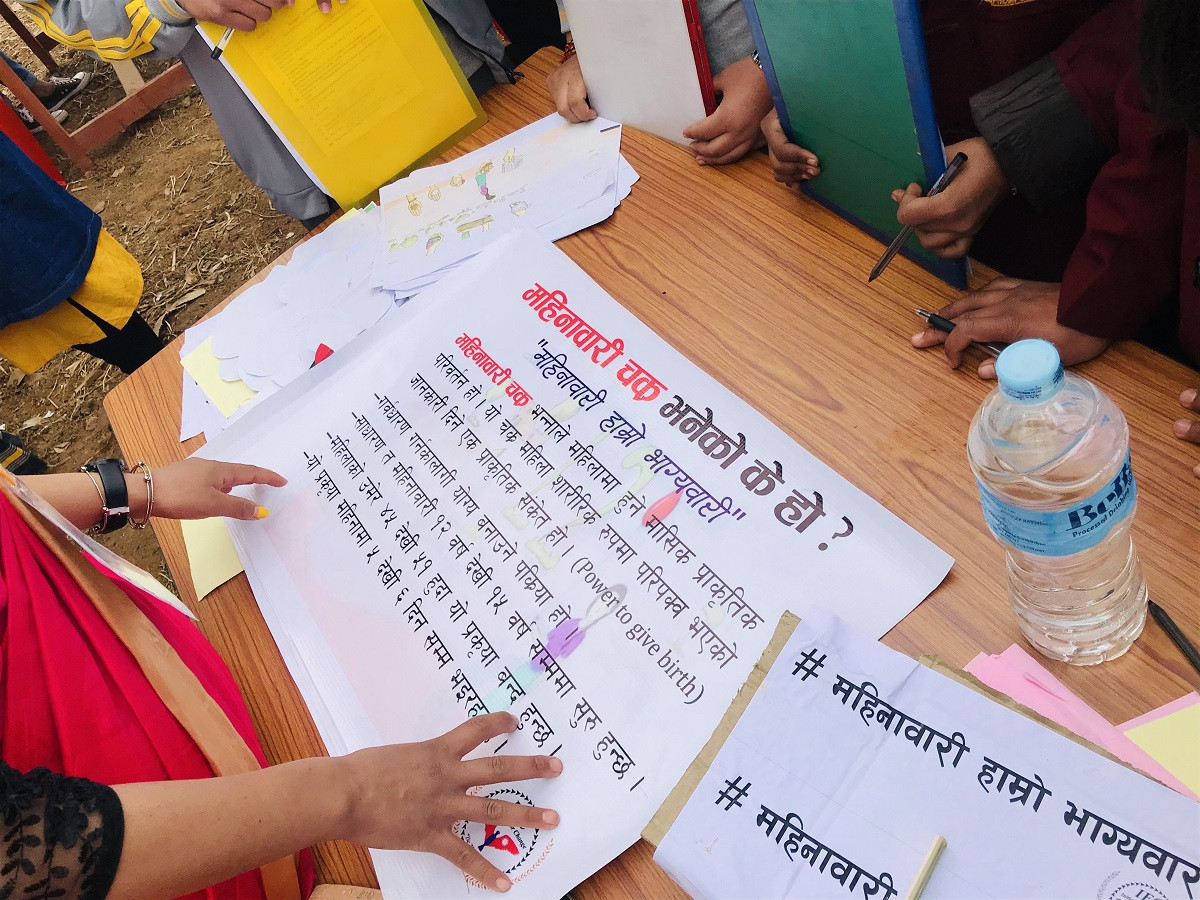 महिनावारी चक्र भनेको के हो ?
"महिनावारी हाम्रो भाग्यवारी"
महिनावारी चक्र भन्नाले महिलामा हुने मासिक प्राकृतिक
परिवर्तन हो। यो चक्र महिला शारीरिक रुपमा परिपक्व भएको
जानकारी दिने एक प्राकृतिक संकेत हो। (Power to give birth)
-गर्वधारण गर्नकालागी योग्य बनाउने प्रकिया हो
-साधारण त महिनावारी १२ वर्ष देखी १५ वर्ष सम्ममा सुरु हुन्छ ।
-महिलाको उमेर ४५ देखी ५१ हुदा यो प्रकृया बन्द हुन्छ ।
-यो प्रकृया महिनामा ५ देखी ६ दिन सम्म
# महिनावारी हाम्रो
# महिनावारी
Processed